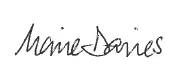 Marie Davies